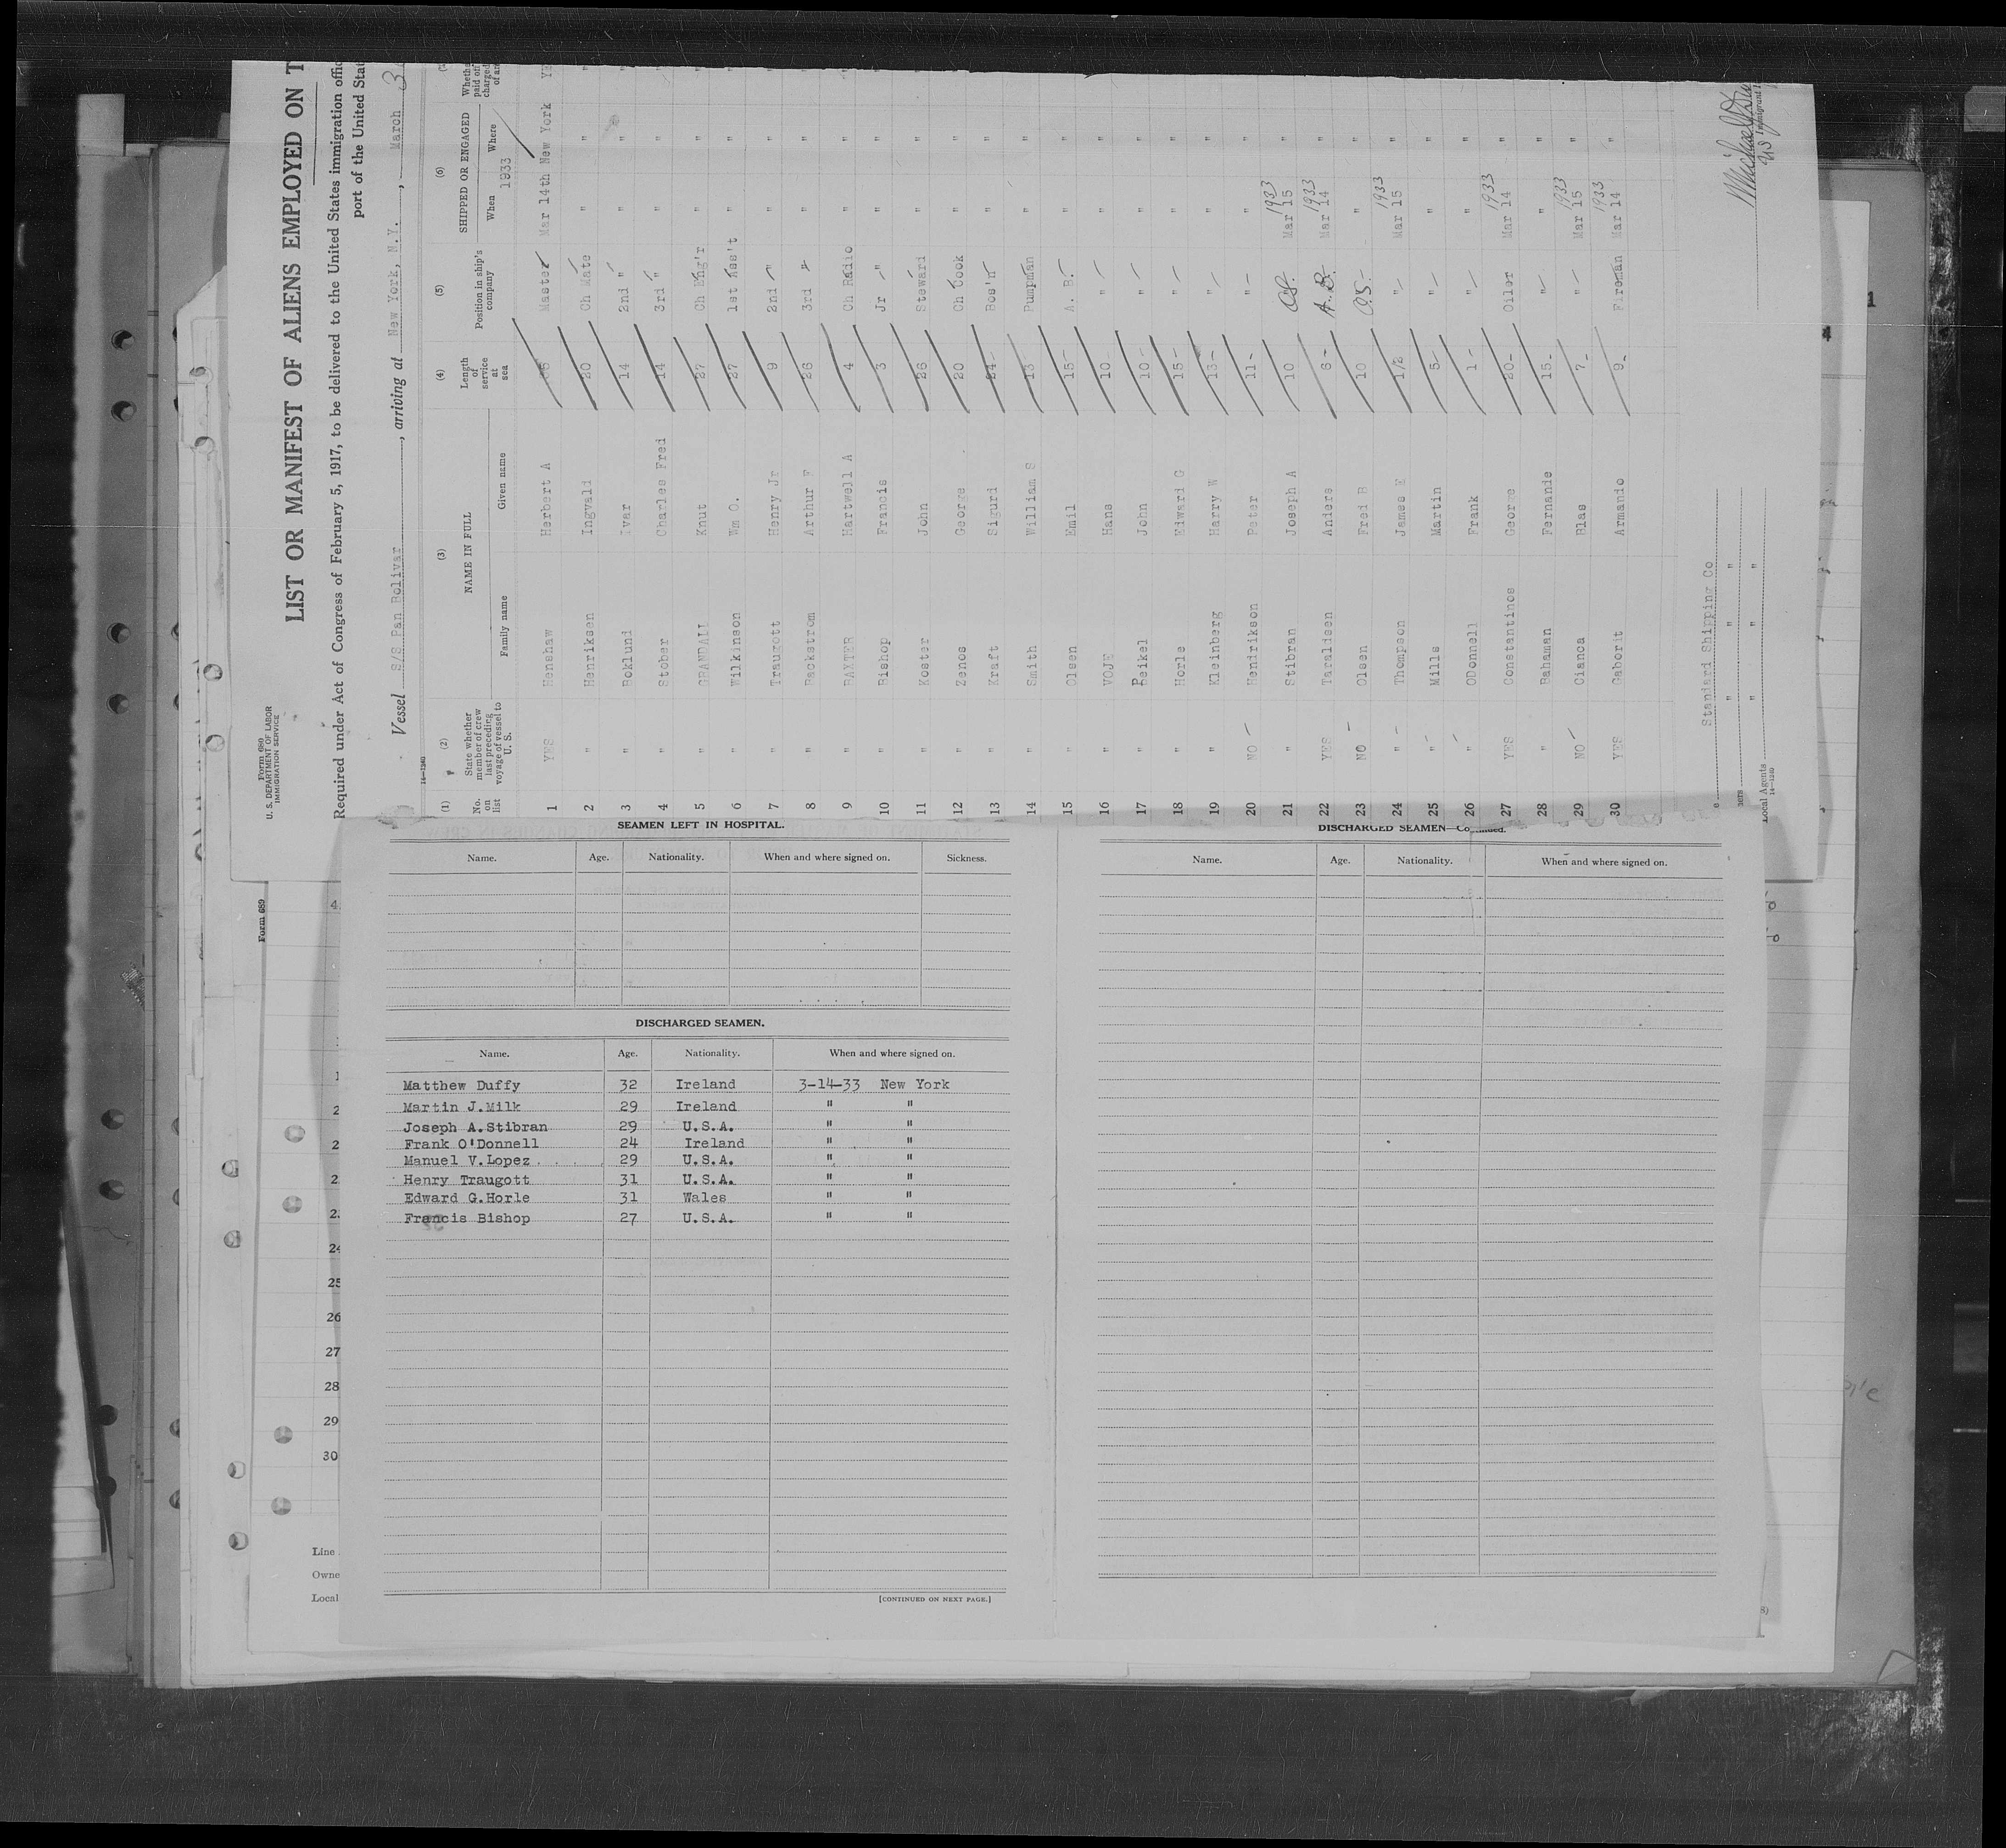 Form 680
U. S. DEPARTMENT OF LABOR
IMMIGRATION SERVICE
LIST OR MANIFEST OF ALIENS EMPLOYED ON T
Required under Act of Congress of February 5, 1917, to be delivered to the United States immigration offic
port of the United Stat
Vessel S/S Pan Bolivar, arriving at New York, N.Y., March
(1) (2) (3) (4) (5) (6)
No. on list State whether member of crew last preceding voyage of vessel to U. S. NAME IN FULL Length of service at sea Position in ship's company SHIPPED OR ENGAGED
Family name Given name When Where
1933
1 YES Henshaw Herbert A Master Mar 14th New York
2 " Henriksen Ingvald 20 Ch Mate " "
3 " Boklund Ivar 14 2nd " " "
4 " Stober Charles Fred 14 3rd " " "
5 " Knut 27 Ch Eng'r " "
6 " Wilkinson Wm O. 27 1st Ass't " "
7 " Traugott Henry Jr 9 2nd " " "
8 " Backstrom Arthur F 26 3rd " " "
9 " BAXTER Hartwell A 4 Ch Radio " "
10 " Bishop Francis 3 Jr " " "
11 " Koster John 26 Steward " "
12 " Zenos George 20 Ch Cook " "
13 " Kraft Sigurd 24 Bos'n " "
14 " Smith William S 13 Pumpman " "
15 " Olsen Emil 15 A. B. " "
16 " VOJE Hans 10 " " "
17 " Beikel John 10 " " "
18 " Horle Edward G 15 " " "
19 " Kleinberg Harry W 13 " " "
20 NO Hendrikson Peter 11 " " "
21 " Stibran Joseph A 10 1933 Mar 15 "
22 YES Taraldsen Anders 6 A.B. 1933 Mar 14 "
23 NO Olsen Fred B 10 O.S. " "
24 " Thompson James E 1/2 " 1933 Mar 15 "
25 " Mills Martin 5 " " "
26 " ODonnell Frank 1 " " "
27 YES Constantinos George 20 Oiler 1933 Mar 14 "
28 " Bahaman Fernande 15 " " "
29 NO Cianca Blas 7 " 1933 Mar 15 "
30 YES Gaborit Armando 9 Fireman 1933 Mar 14 "
Standard Shipping Co
" " "
Local Agents " " "
SEAMEN LEFT IN HOSPITAL.
Name. Age. Nationality. When and where signed on. Sickness.
DISCHARGED SEAMEN.
Name. Age. Nationality. When and where signed on.
Matthew Duffy 32 Ireland 3-14-33 New York
Martin J.Milk 29 Ireland " "
Joseph A.Stibran 29 U.S.A. " "
Frank O'Donnell 24 Ireland " "
Manuel V.Lopez 29 U.S.A. " "
Henry Traugott 31 U.S.A. " "
Edward G.Horle 31 Wales " "
Francis Bishop 27 U.S.A. " "
[CONTINUED ON NEXT PAGE.]
DISCHARGED SEAMEN—
Name. Age. Nationality. When and where signed on.
Form 689
24
25
26
27
28
29
30
Line
Owne
Local